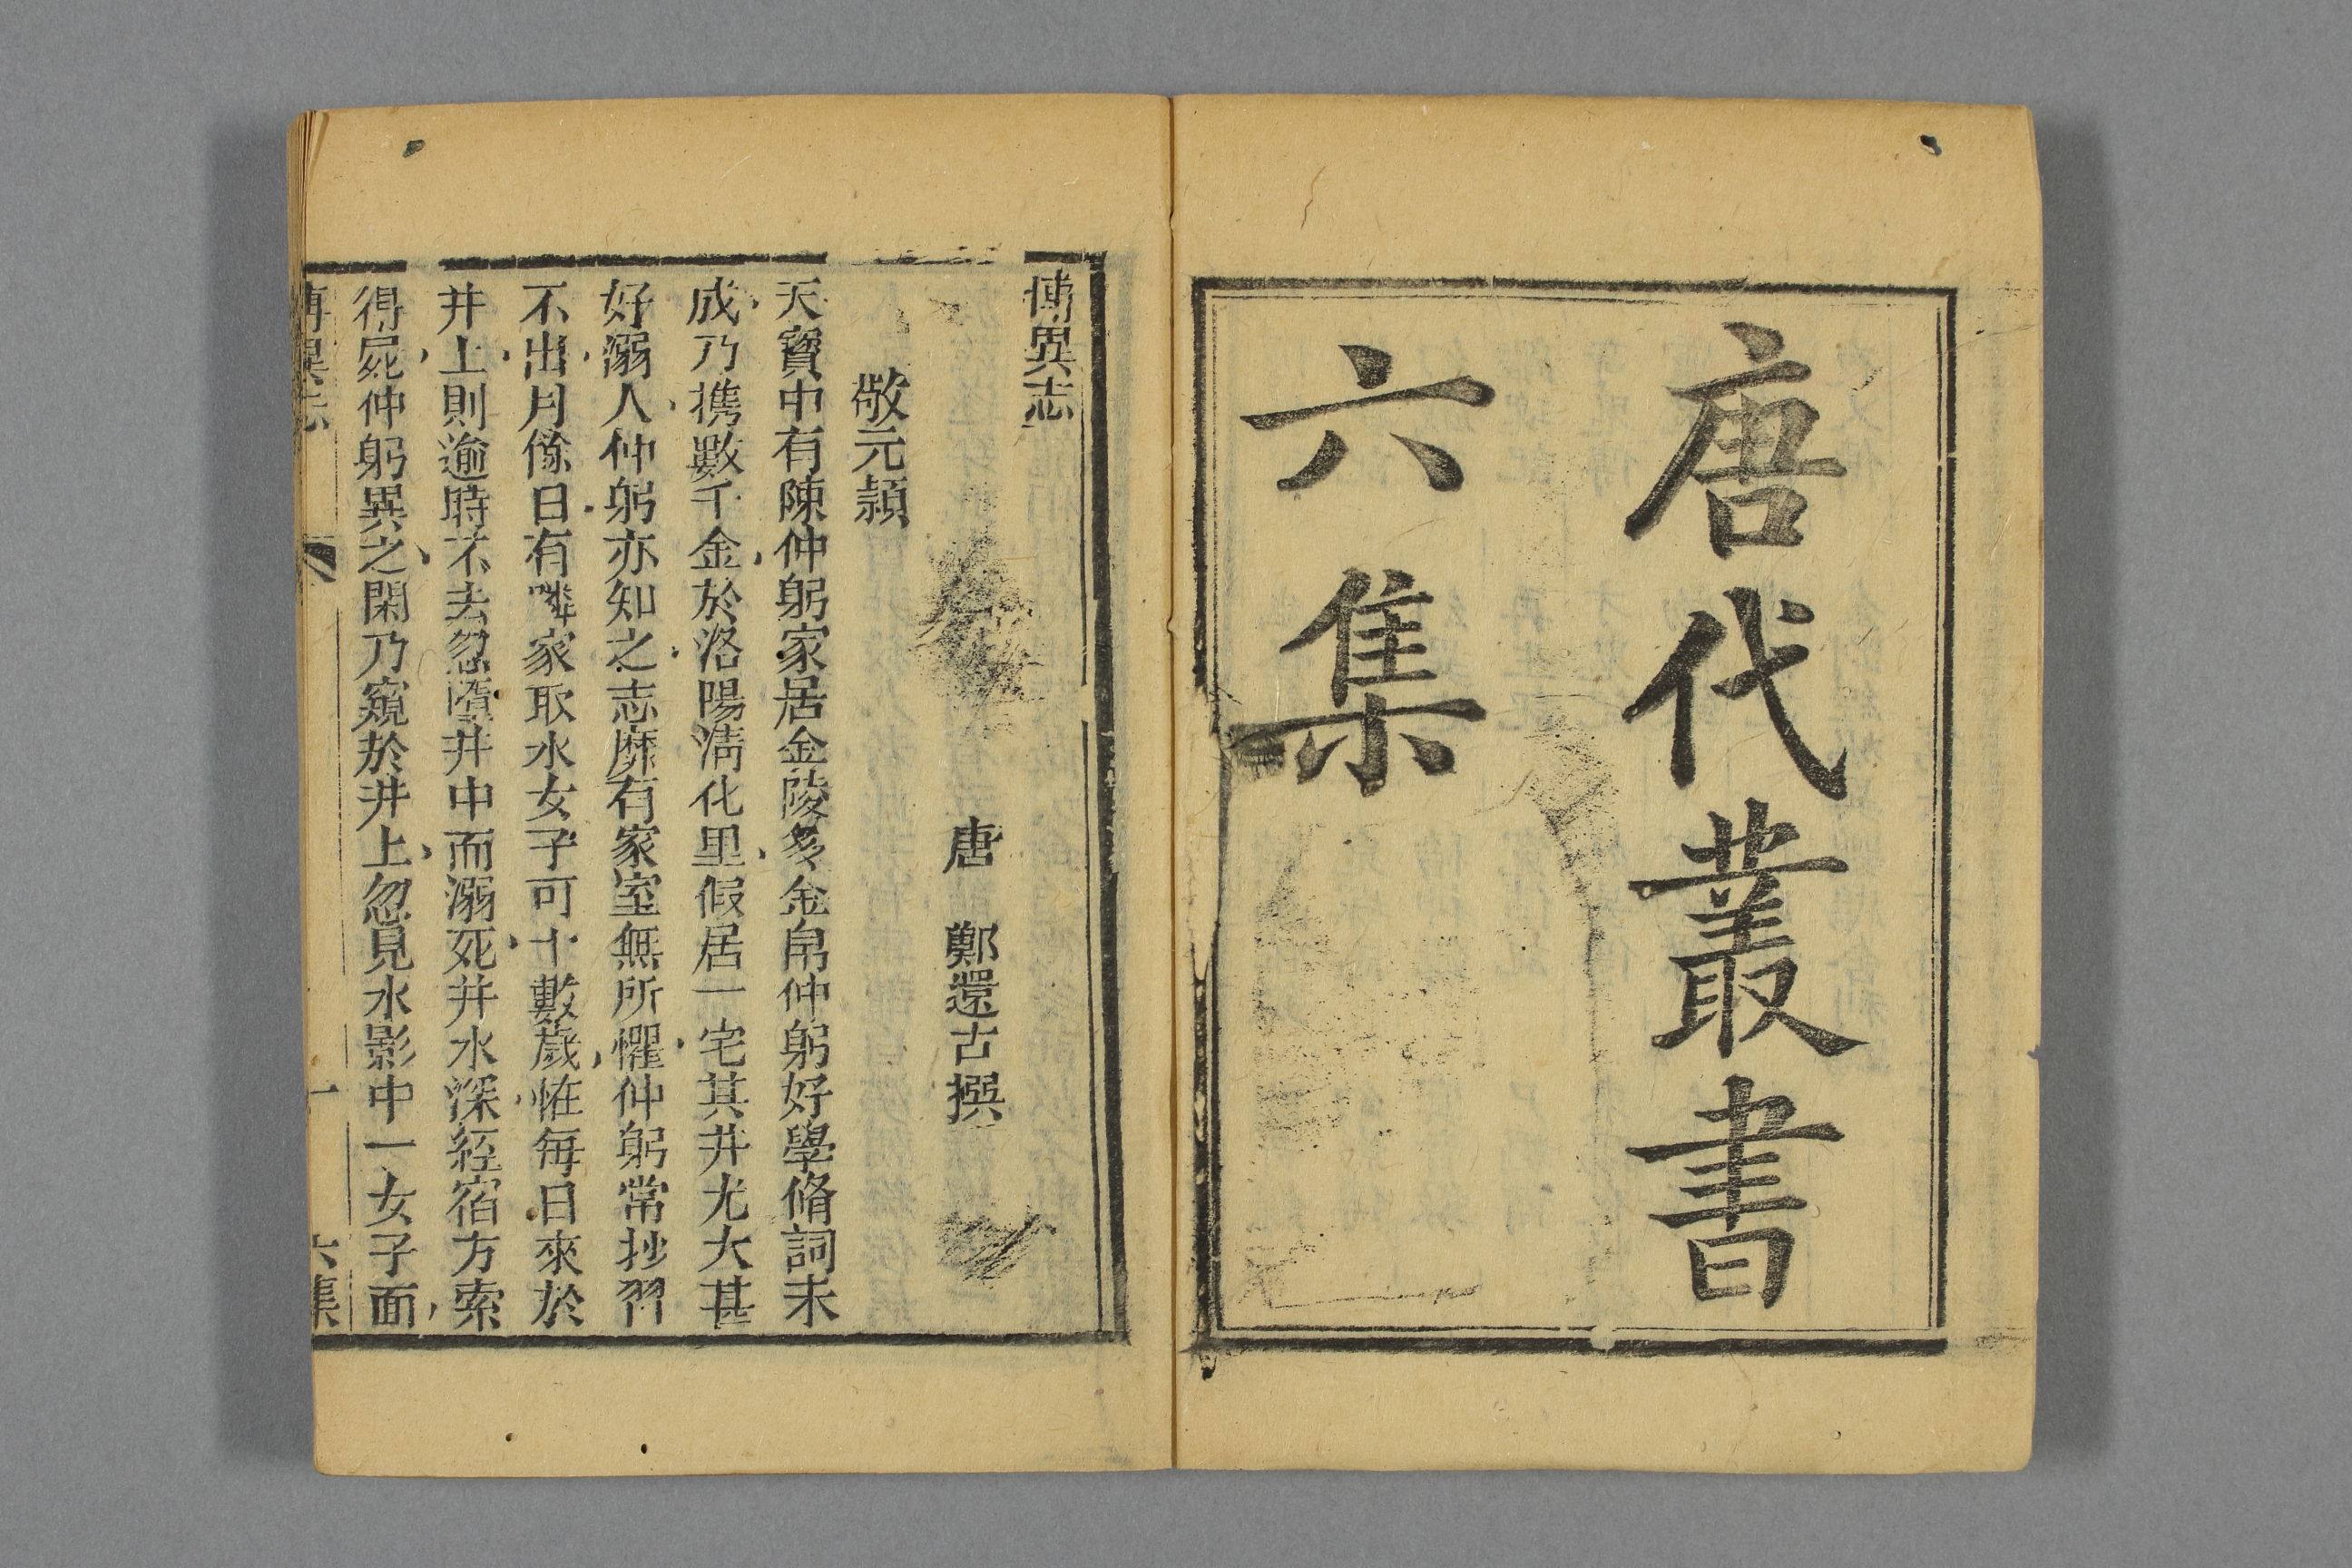 唐代叢書
六集
博異志
唐 鄭還古撰
敬元頴
天寶中有陳仲躬家居金陵多金帛仲躬好學脩詞未
成乃携數千金於洛陽淸化里假居一宅其井尤大甚
好溺人仲躬亦知之志靡有家室無所懼仲躬常抄習
不出月餘日有隣家取水女子可十數歲恠每日來於
井上則逾時不去忽墮井中而溺死井水深經宿方索
得屍仲躬異之閑乃窺於井上忽見水影中一女子面
博異志 一 六集